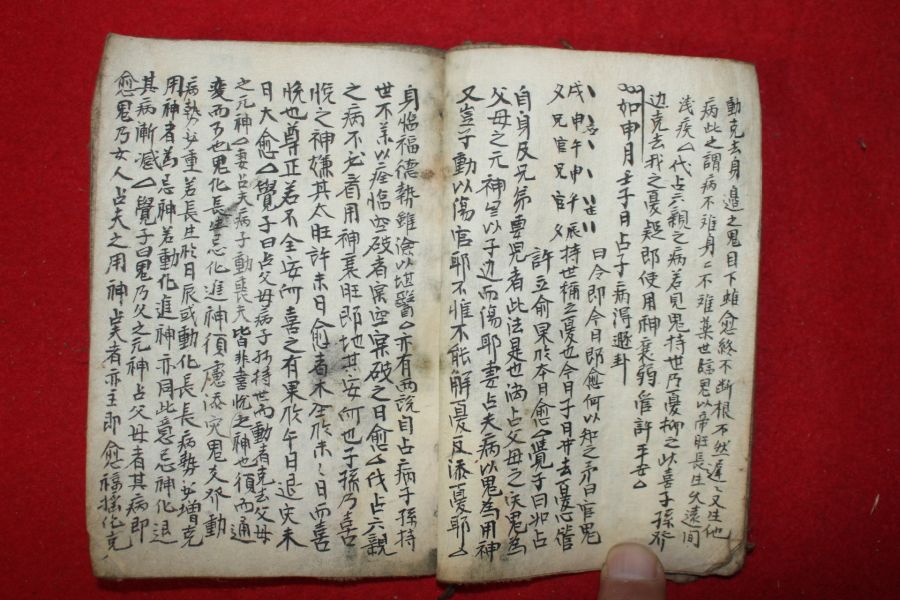 動克去身邊之鬼目下雖愈終不斷根不然遲〻又生他
病此之謂病不难身〻不难藥世臨鬼以帝旺長生久遠间
淺疾△代占六親之病若見鬼持世乃憂抑之此喜子孫於
边克去我之憂疑即使用神衰弱管許平安△
如申月壬子日占子病得遯卦
戌申午申午辰持世稱之憂也今日子日冲去憂心管
父兄官兄官父
曰今即今日即愈何以知之矛曰官鬼
許立俞果於本日愈△覺子曰如占
自身及兄弟妻児者此法是也倘占父母之病鬼為
父母之元神豈以子边而傷耶妻占夫病以鬼為用神
又豈子動以傷官耶不惟不能解憂反添憂耶△
身临福德勢雖險以堪醫△亦有两說自占病子孫持
世不美以痊临空破者實空實破之日愈△代占六親
之病不必看用神衰旺即地其安何也子孫乃喜
悅之神嫌其太旺許未日愈者不全於未〻日而喜
悅也尊正若不全安何喜之有果於午日退灾未
日大愈△覺子曰占父母病子孫持世而動者克去父母
之元神△妻占夫病子動喪夫皆非喜悅之神也須而通
変而占也鬼化長生忌化進神須慮添灾鬼爻發動
病勢必重若長生於日辰或動化長生長病勢必增克
用神者為忌神若動化進神亦同此意忌神化退
其病漸减△覺子曰鬼乃父之元神占父母者其病即
愈鬼乃女人占夫之用神占夫者亦主即愈福搖化克